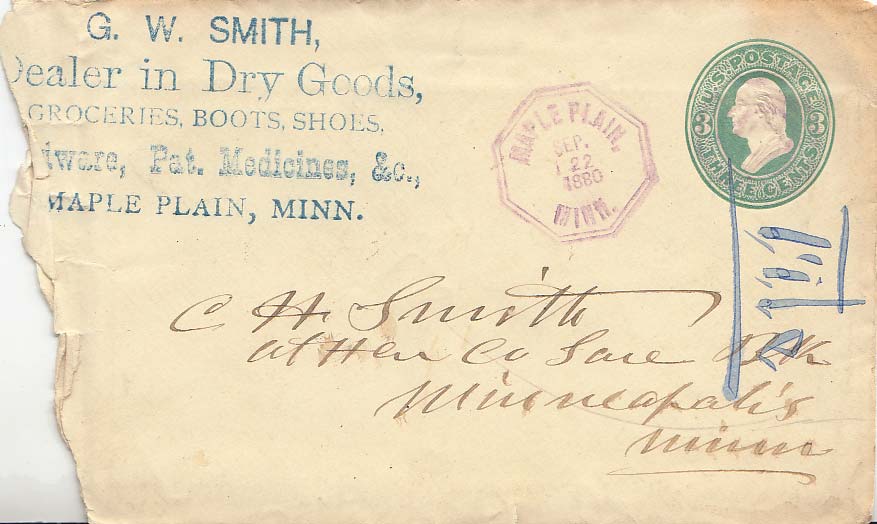 G. W. SMITH,
Dealer in Dry Goods,
GROCERIES, BOOTS, SHOES,
tware, Pat. Medicines, &c.,
MAPLE PLAIN, MINN.
MAPLE PLAIN,
SEP.
22
1880
MINN.
U.S. POSTAGE
3 3
THREE CENTS
C H Smith
at Hen Co Save Bk
Minneapolis
Minn